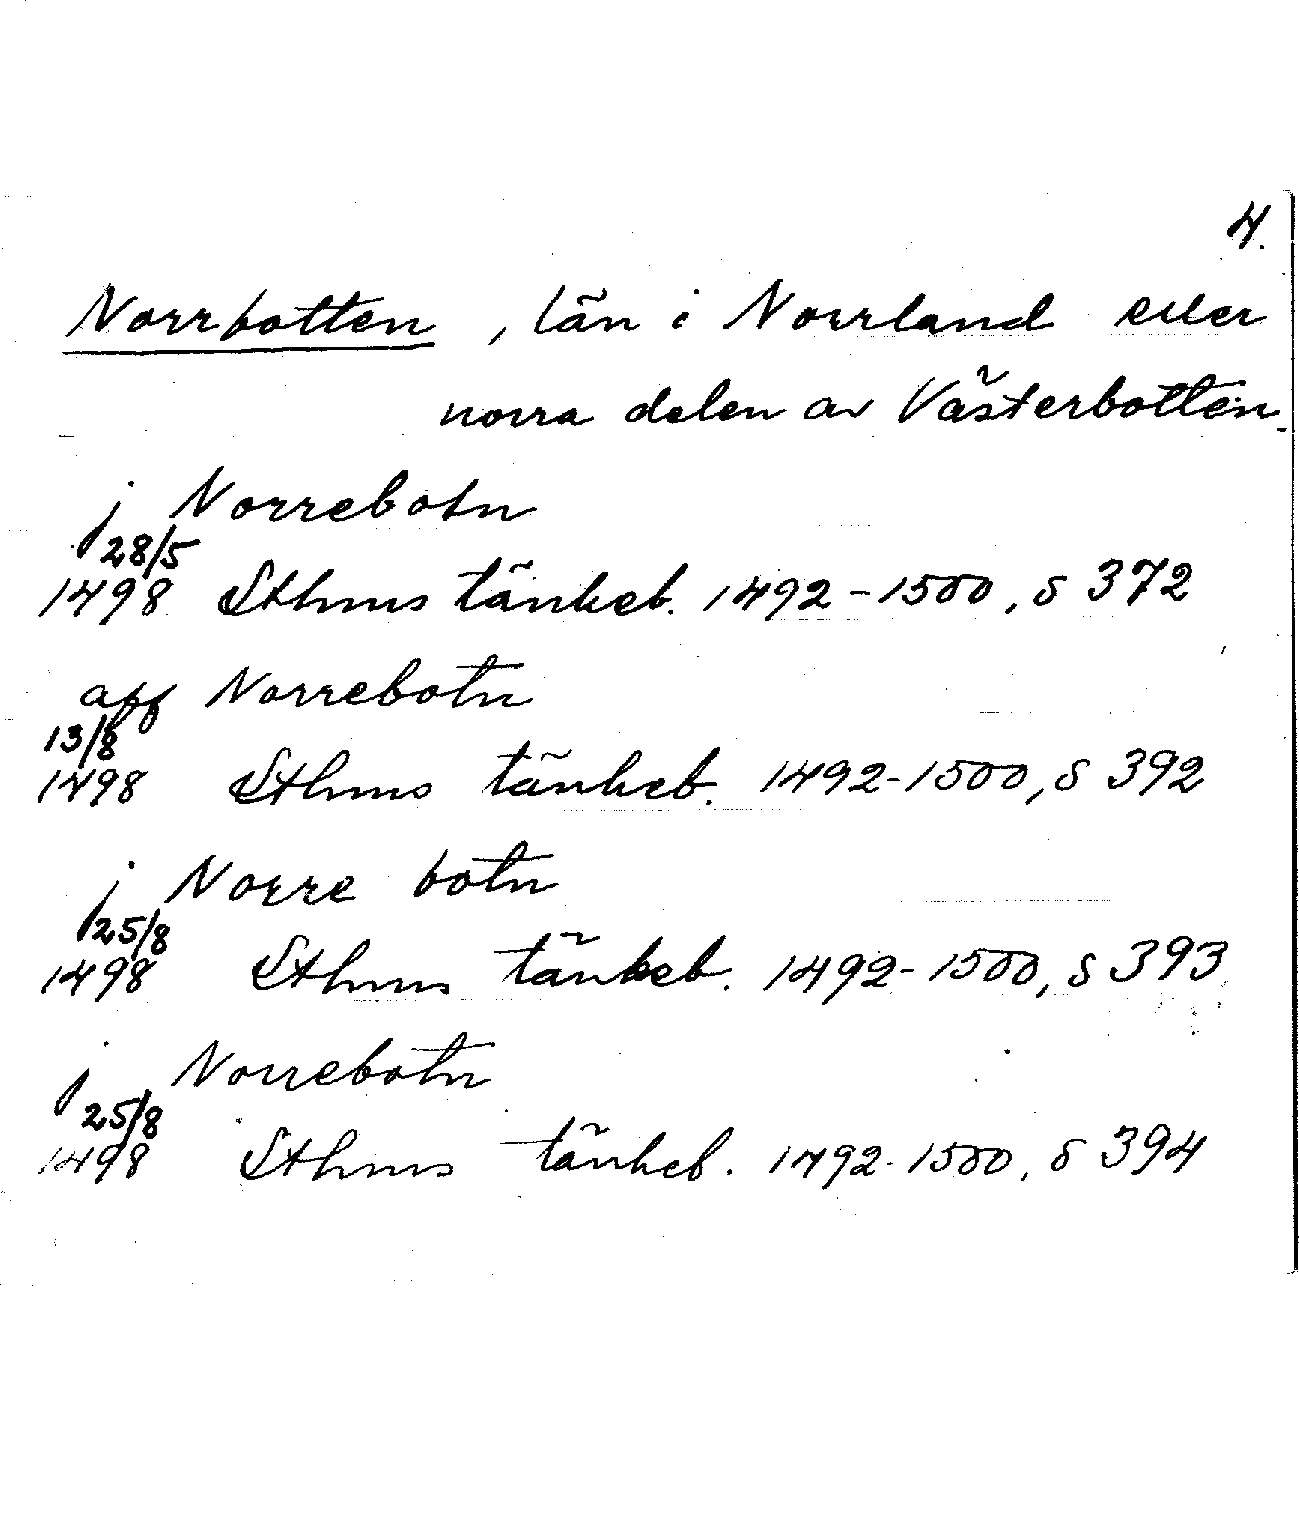 4.
Norrbotten, län i Norrland eller
norra delen av Västerbotten.
j Norrebotn
28/5
1498 Sthms tänkeb. 1492-1500, s 372
aff Norrebotn
13/8
1498 Sthms tänkeb. 1492-1500, s 392
j Norre botn
25/8
1498 Sthms tänkeb. 1492-1500, s 393
j Norrebotn
25/8
1498 Sthms tänkeb. 1492-1500, s 394